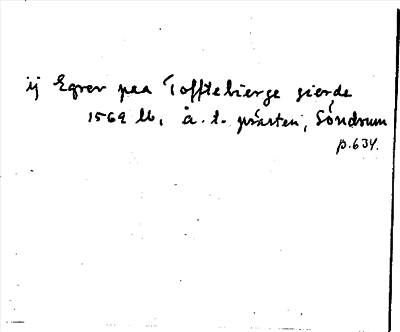 ij Egrer paa Tofftebierge gierde
1569 lb, å. t. prästen, Söndrum
p.634.